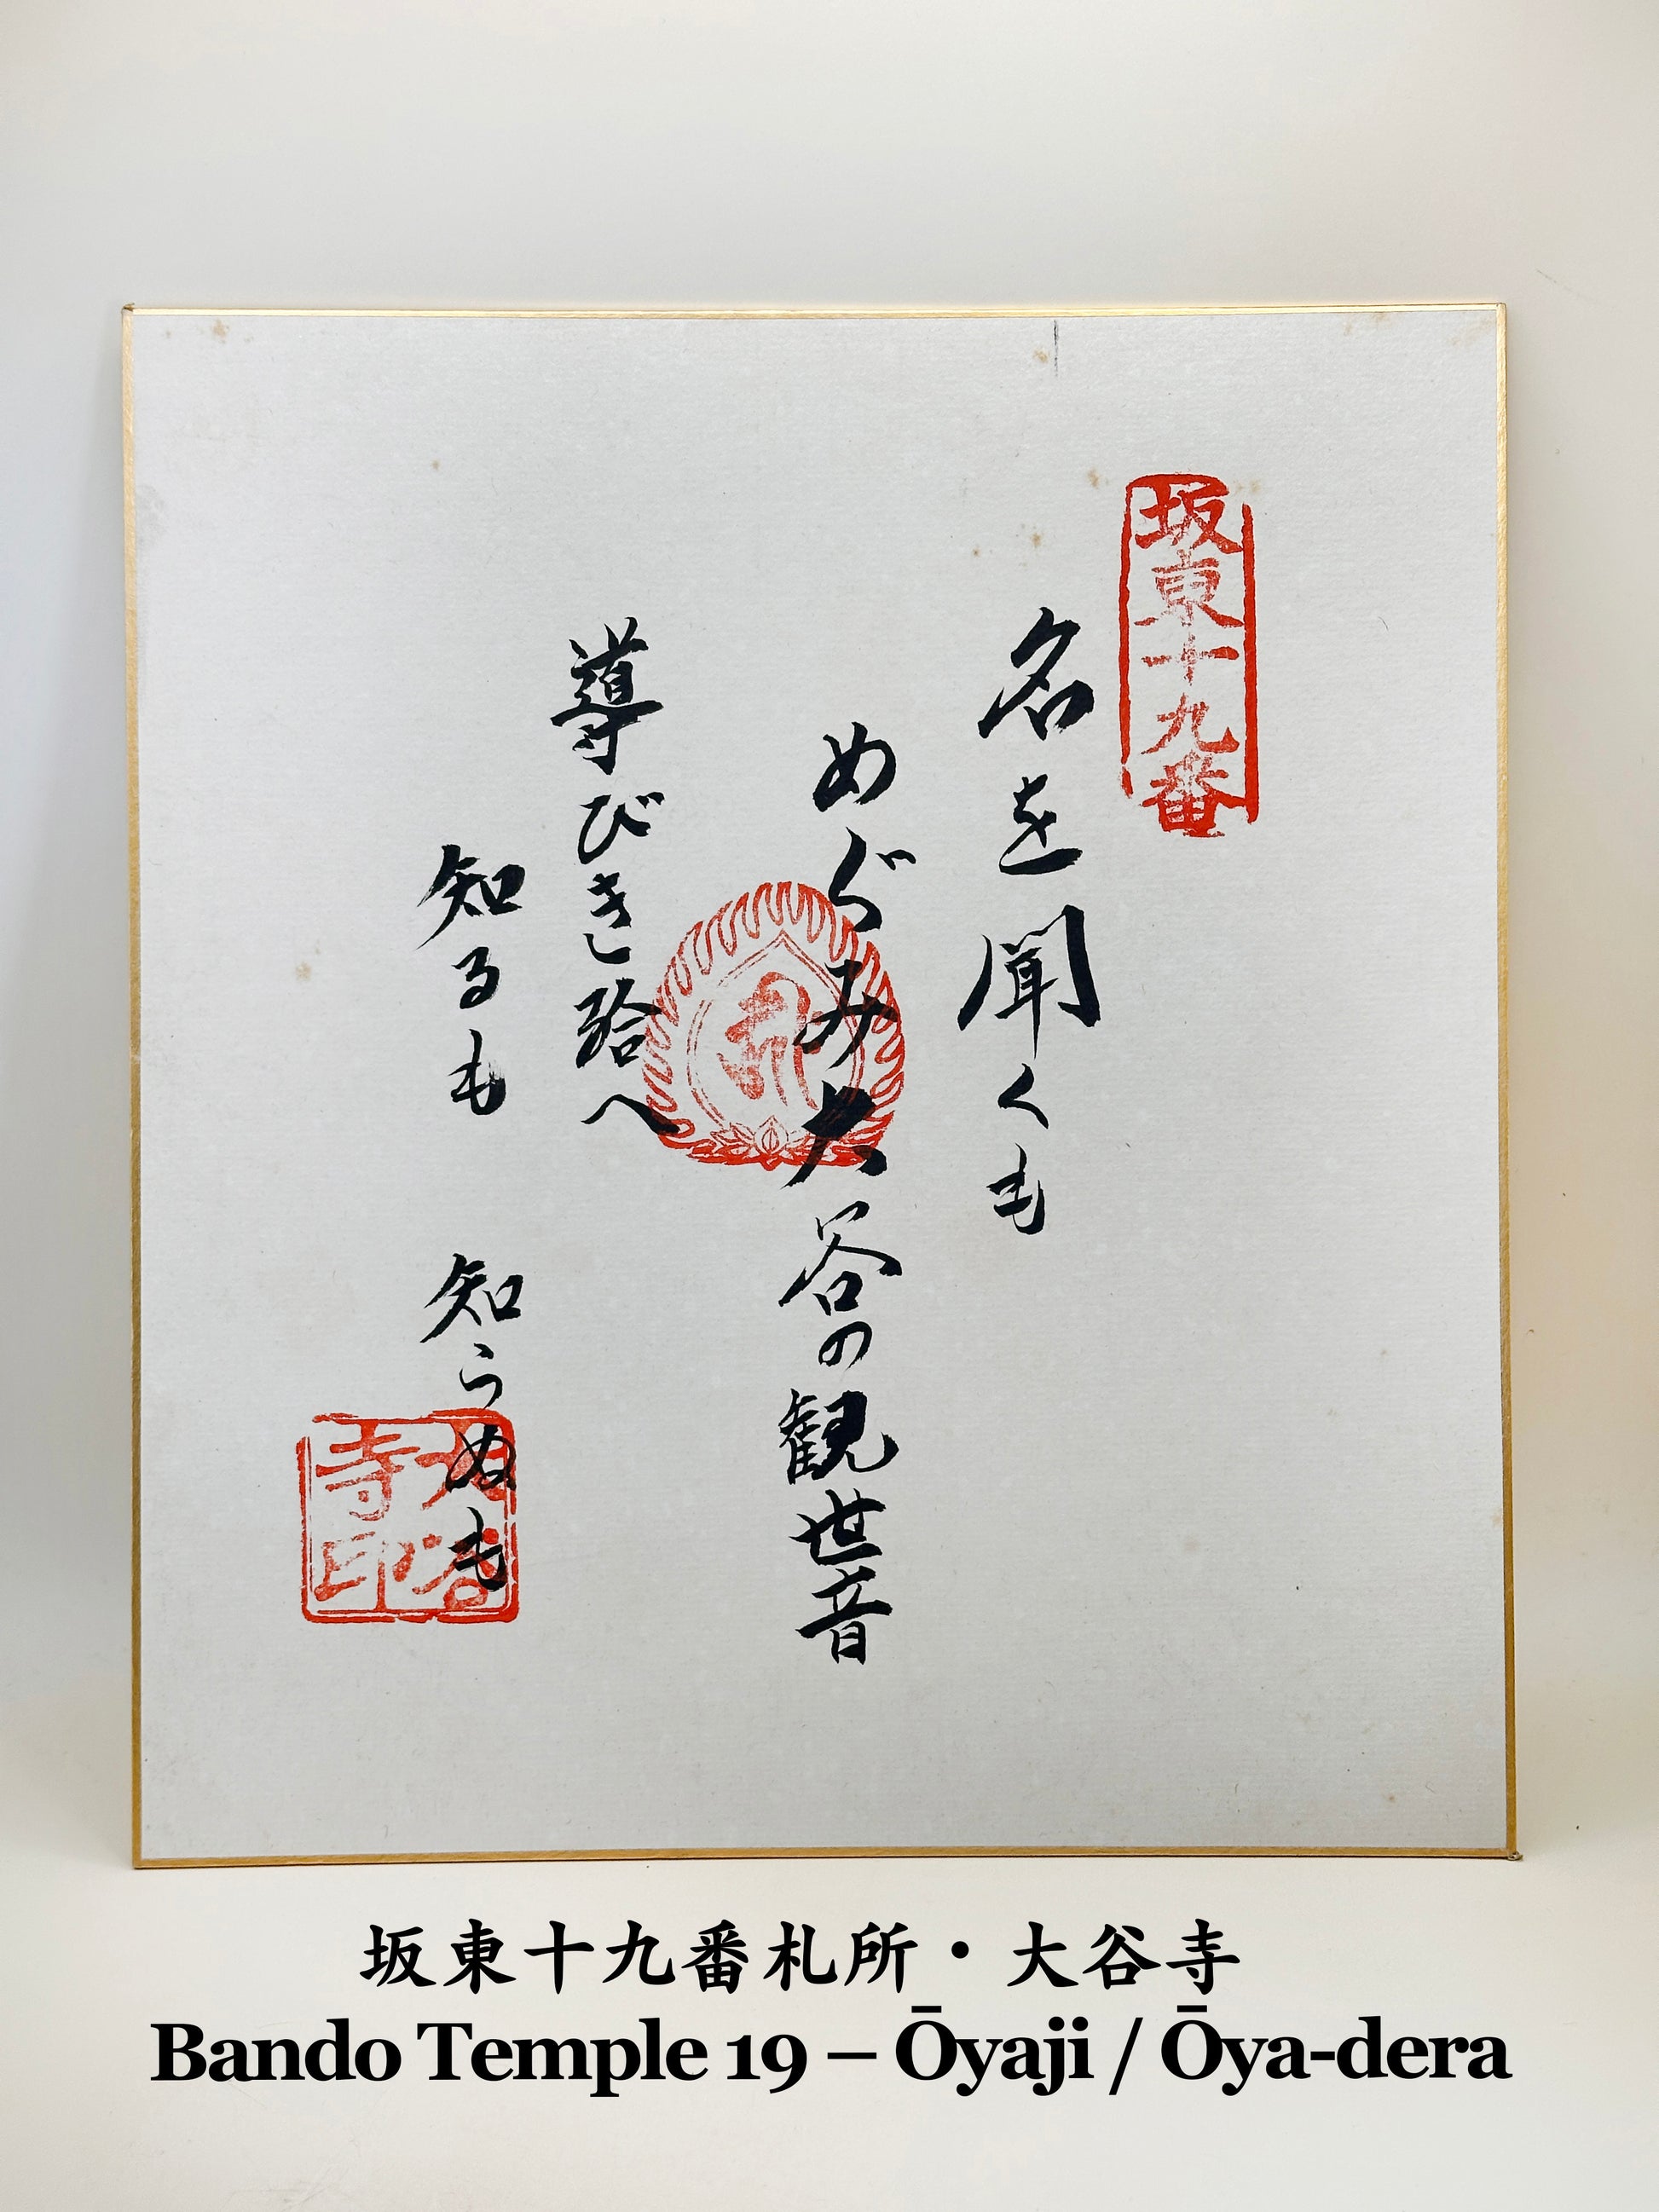 坂東十九番
名を聞くも
めぐみ大谷の観世音
導びきし給へ
知るも 知らぬも
大谷寺印
坂東十九番札所・大谷寺
Bando Temple 19 – Ōyaji / Ōya-dera